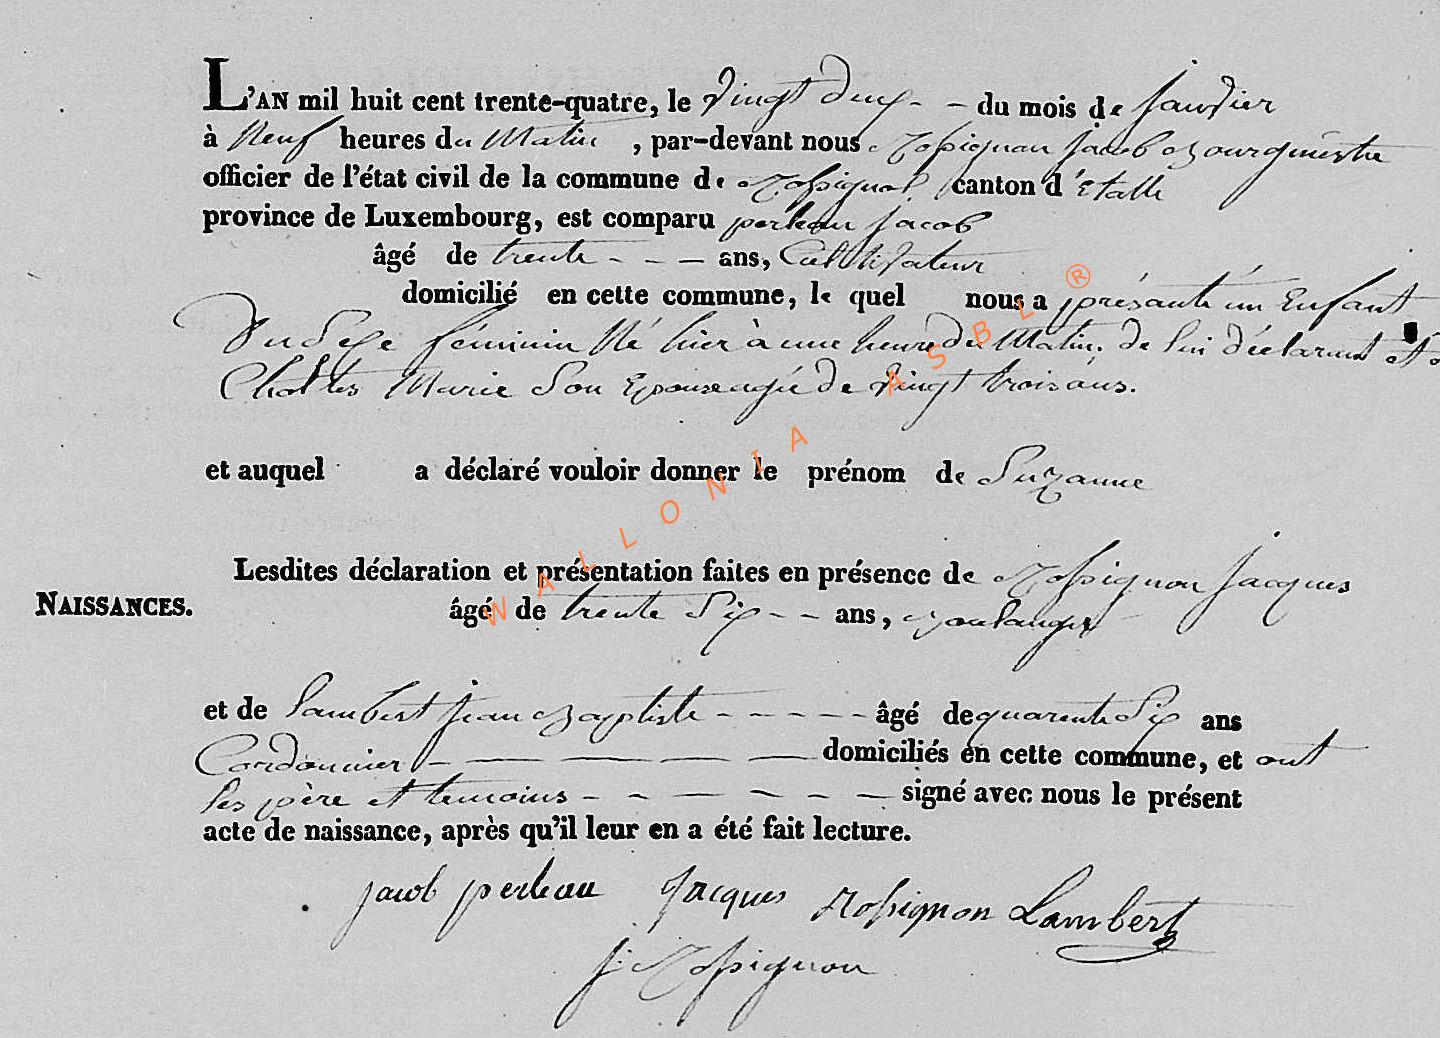 L'AN mil huit cent trente-quatre, le vingt deux - - du mois de janvier
à Neuf heures du Matin , par-devant nous Rossignon jacob Bourguestre
officier de l'état civil de la commune de Rossignol canton d'Etalle
province de Luxembourg, est comparu perleau jacob
âgé de trente - - - ans, Cultivateur
domicilié en cette commune, le quel nous a présanté un Enfant
Du Sexe féminin Né hier à une heure du Matin, de lui déclarant et
Charles Marie Son Epouse agée de vingt trois ans.
et auquel a déclaré vouloir donner le prénom de Suzanne
Lesdites déclaration et présentation faites en présence de Rossignon jacques
NAISSANCES.
âgé de trente Six - - ans, Boulanger
et de Lambert jean Baptiste - - - - - âgé de quarente Six ans
Cordonnier - — — — — domiciliés en cette commune, et ont
les père et temoins - - - - - - — signé avec nous le présent
acte de naissance, après qu'il leur en a été fait lecture.
jacob perleau Jacques Rossignon Lambert
j: Rossignon
WALLONIA ASBL ®